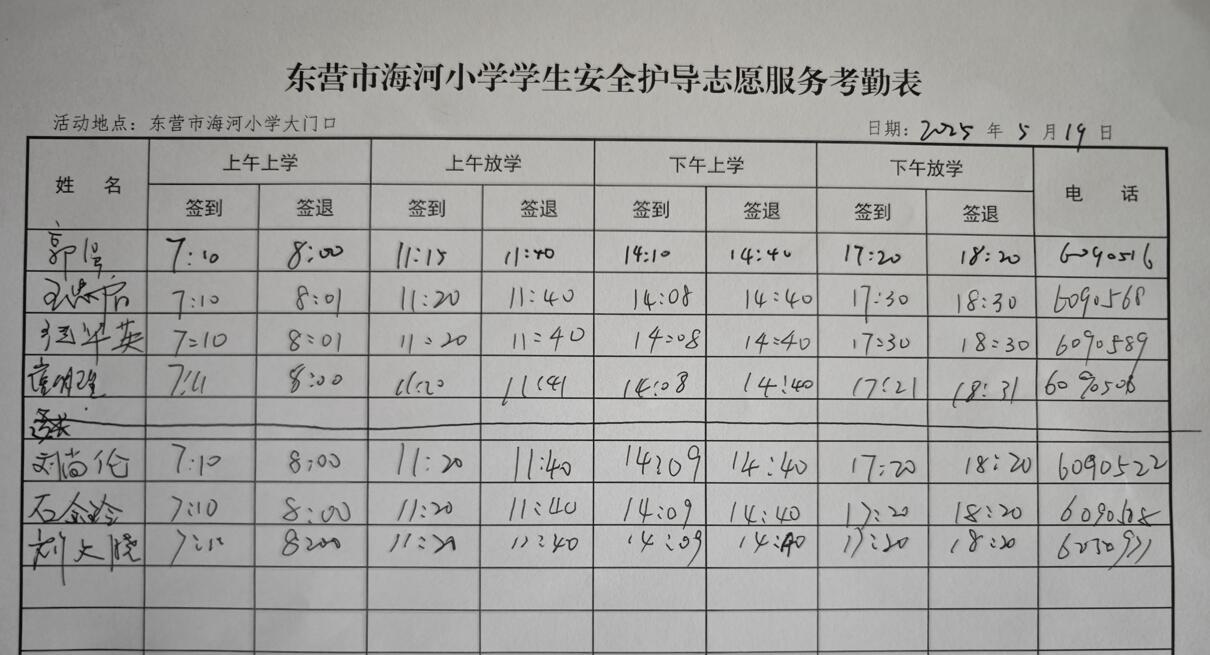 东营市海河小学学生安全护导志愿服务考勤表
活动地点：东营市海河小学大门口 日期：2025 年 5 月 19 日
姓 名 上午上学 上午放学 下午上学 下午放学 电 话
签到 签退 签到 签退 签到 签退 签到 签退
郭 7:10 8:00 11:15 11:40 14:10 14:40 17:20 18:20 6090516
7:10 8:01 11:20 11:40 14:08 14:40 17:30 18:30 6090568
华英 7:10 8:01 11:20 11:40 14:08 14:40 17:30 18:30 6090589
7:11 8:00 11:20 11:41 14:08 14:40 17:21 18:31 6090506
刘尚伦 7:10 8:00 11:20 11:40 14:09 14:40 17:20 18:20 6090522
石金玲 7:10 8:00 11:20 11:40 14:09 14:40 17:20 18:20
8:00 11:20 11:40 14:09 14:40 17:20 18:20